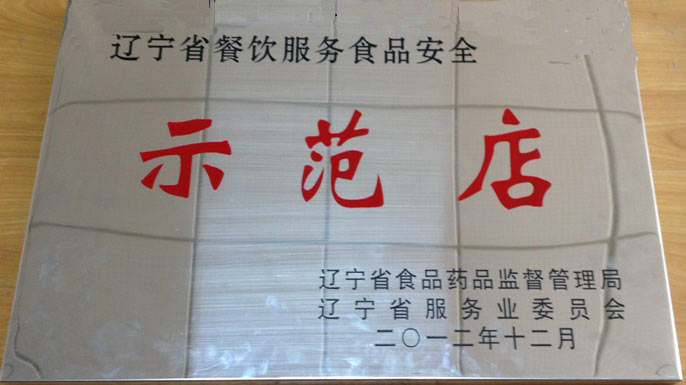 辽宁省餐饮服务食品安全
示范店
辽宁省食品药品监督管理局
辽宁省服务业委员会
二〇一二年十二月